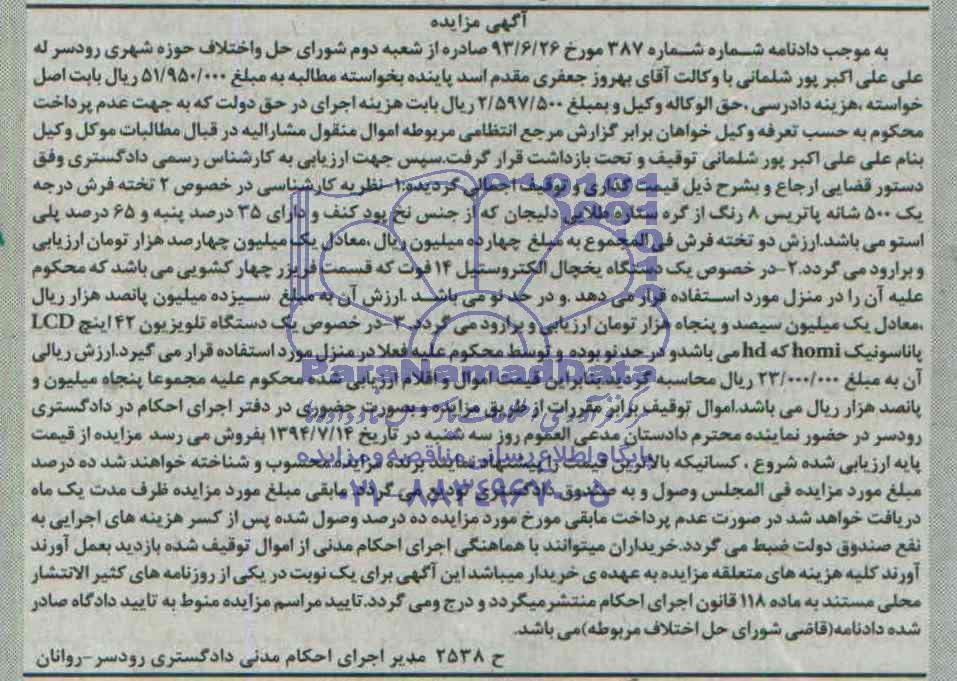 آگهی مزایده
به موجب دادنامه شماره شماره ۳۸۷ مورخ ۹۳/۶/۲۶ صادره از شعبه دوم شورای حل واختلاف حوزه شهری رودسر له
علی علی اکبر پور شلمانی با وکالت آقای بهروز جعفری مقدم اسد پاینده بخواسته مطالبه به مبلغ ۵۱/۹۵۰/۰۰۰ ریال بابت اصل
خواسته ،هزینه دادرسی ،حق الوکاله وکیل و بمبلغ ۲/۵۹۷/۵۰۰ ریال بابت هزینه اجرای در حق دولت که به جهت عدم پرداخت
محکوم به حسب تعرفه وکیل خواهان برابر گزارش مرجع انتظامی مربوطه اموال منقول مشارالیه در قبال مطالبات موکل وکیل
بنام علی علی اکبر پور شلمانی توقیف و تحت بازداشت قرار گرفت.سپس جهت ارزیابی به کارشناس رسمی دادگستری وفق
دستور قضایی ارجاع و بشرح ذیل قیمت گذاری و توقیف اجمالی گردیده:۱- نظریه کارشناسی در خصوص ۲ تخته فرش درجه
یک ۵۰۰ شانه پاتریس ۸ رنگ از گره ستاره طلایی دلیجان که از جنس نخ پود کنف و دارای ۳۵ درصد پنبه و ۶۵ درصد پلی
استو می باشد.ارزش دو تخته فرش فی المجموع به مبلغ چهارده میلیون ریال ،معادل یک میلیون چهارصد هزار تومان ارزیابی
و برارود می گردد.۲-در خصوص یک دستگاه یخچال الکتروستیل ۱۴ فوت که قسمت فریزر چهار کشویی می باشد که محکوم
علیه آن را در منزل مورد استفاده قرار می دهد .و در حد نو می باشد .ارزش آن به مبلغ سیزده میلیون پانصد هزار ریال
،معادل یک میلیون سیصد و پنجاه هزار تومان ارزیابی و برارود می گردد.۳-در خصوص یک دستگاه تلویزیون ۴۲ اینچ LCD
پاناسونیک homi که hd می باشدو در حد نو بوده و توسط محکوم علیه فعلا در منزل مورد استفاده قرار می گیرد.ارزش ریالی
آن به مبلغ ۲۳/۰۰۰/۰۰۰ ریال محاسبه گردید بنابراین قیمت اموال و اقلام ارزیابی شده محکوم علیه مجموعا پنجاه میلیون و
پانصد هزار ریال می باشد.اموال توقیف برابر مقررات از طریق مزایده و بصورت حضوری در دفتر اجرای احکام در دادگستری
رودسر در حضور نماینده محترم دادستان مدعی العموم روز سه شنبه در تاریخ ۱۳۹۴/۷/۱۴ بفروش می رسد مزایده از قیمت
پایه ارزیابی شده شروع ، کسانیکه بالاترین قیمت را پیشنهاد نمایند برنده مزایده محسوب و شناخته خواهند شد ده درصد
مبلغ مورد مزایده فی المجلس وصول و به صندوق دادگستری تودیع می گردد مابقی مبلغ مورد مزایده ظرف مدت یک ماه
دریافت خواهد شد در صورت عدم پرداخت مابقی مورخ مورد مزایده ده درصد وصول شده پس از کسر هزینه های اجرایی به
نفع صندوق دولت ضبط می گردد.خریداران میتوانند با هماهنگی اجرای احکام مدنی از اموال توقیف شده بازدید بعمل آورند
آورند کلیه هزینه های متعلقه مزایده به عهده ی خریدار میباشد این آگهی برای یک نوبت در یکی از روزنامه های کثیر الانتشار
محلی مستند به ماده ۱۱۸ قانون اجرای احکام منتشرمیگردد و درج ومی گردد.تایید مراسم مزایده منوط به تایید دادگاه صادر
شده دادنامه(قاضی شورای حل اختلاف مربوطه)می باشد.
ح ۲۵۳۸ مدیر اجرای احکام مدنی دادگستری رودسر-روانان
ParaNamadData
پایگاه اطلاع رسانی مناقصه و مزایده
۰۲۱-۸۸۳۴۹۶۷۰-۵